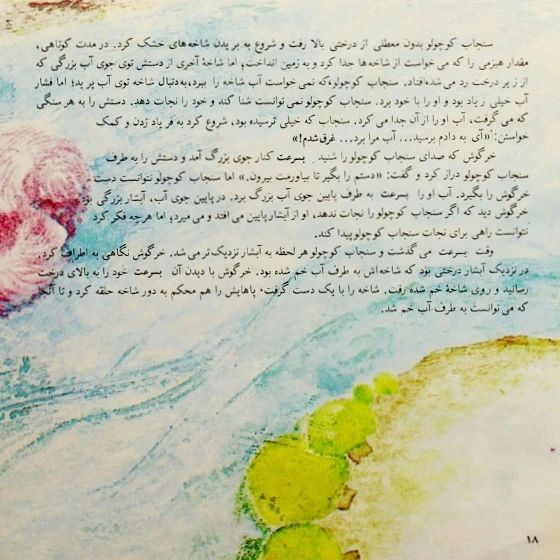 سنجاب کوچولو بدون معطلی از درختی بالا رفت و شروع به بریدن شاخه‌های خشک کرد. در مدت کوتاهی،
مقدار هیزمی را که می‌خواست از شاخه‌ها جدا کرد و به زمین انداخت؛ اما شاخهٔ آخری از دستش توی جوی آب بزرگی که
از زیر درخت رد می‌شد، افتاد. سنجاب کوچولو، که نمی‌خواست آب شاخه را ببرد، به دنبال شاخه توی آب پرید؛ اما فشار
آب خیلی زیاد بود و او را با خود برد. سنجاب کوچولو نمی‌توانست شنا کند و خود را نجات دهد. دستش را به هر سنگی
که می‌گرفت، آب او را از آن جدا می‌کرد. سنجاب که خیلی ترسیده بود، شروع کرد به فریاد زدن و کمک
خواستن: «آی به دادم برسید... آب مرا برد... غرق شدم!»
خرگوش که صدای سنجاب کوچولو را شنید بسرعت کنار جوی بزرگ آمد و دستش را به طرف
سنجاب کوچولو دراز کرد و گفت: «دستم را بگیر تا بیاورمت بیرون.» اما سنجاب کوچولو نتوانست دست
خرگوش را بگیرد. آب او را بسرعت به طرف پایین جوی آب بزرگ برد. در پایین جوی آب، آبشار بزرگی بود
خرگوش دید که اگر سنجاب کوچولو را نجات ندهد، او از آبشار پایین می‌افتد و می‌میرد؛ اما هرچه فکر کرد
نتوانست راهی برای نجات سنجاب کوچولو پیدا کند.
وقت بسرعت می‌گذشت و سنجاب کوچولو هر لحظه به آبشار نزدیک‌تر می‌شد. خرگوش نگاهی به اطراف کرد.
در نزدیک آبشار درختی بود که شاخه‌اش به طرف آب خم شده بود. خرگوش با دیدن آن بسرعت خود را به بالای درخت
رسانید و روی شاخهٔ خم شده رفت. شاخه را با یک دست گرفت، پاهایش را هم محکم به دور شاخه حلقه کرد و تا آنجا
که می‌توانست به طرف آب خم شد.
۱۸